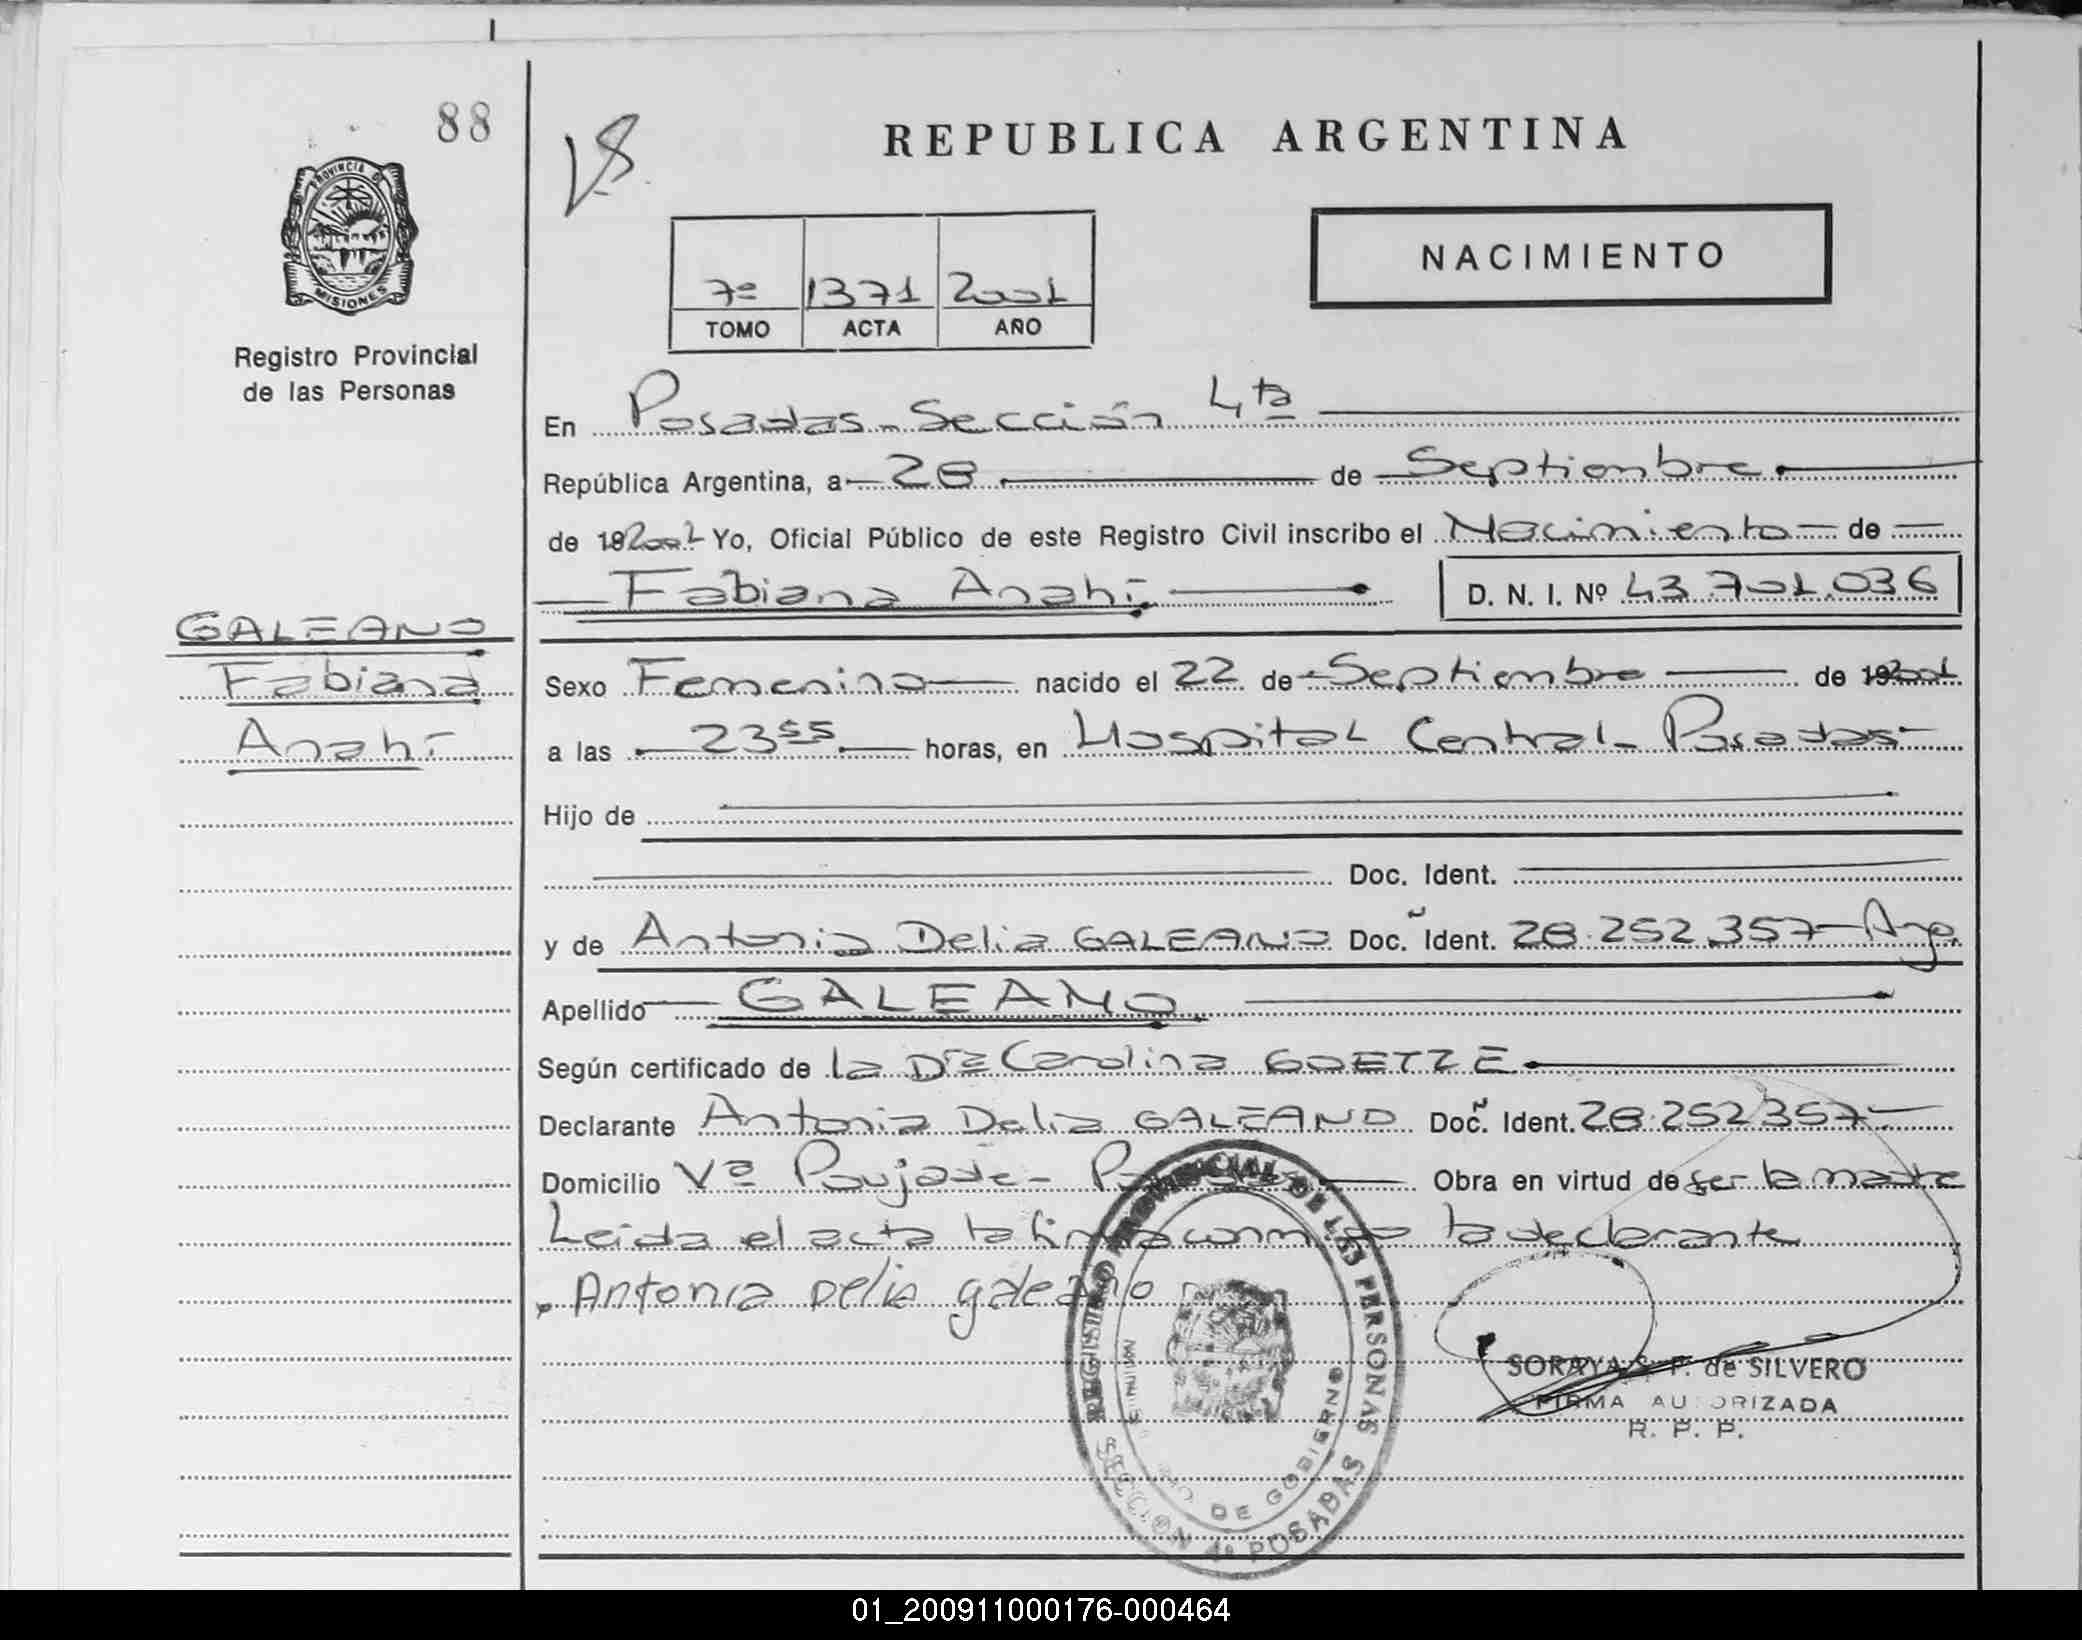 88
V8
REPUBLICA ARGENTINA
PROVINCIA D
MISIONES
Registro Provincial
de las Personas
NACIMIENTO
7º 1371 2001
TOMO ACTA AÑO
En Posadas - Sección 4ta
República Argentina, a 28 de Septiembre
de 192001 Yo, Oficial Público de este Registro Civil inscribo el Nacimiento de
Fabiana Anahí D. N. I. Nº 43.701.036
GALEANO
Fabiana
Anahí
Sexo Femenino nacido el 22 de Septiembre de 192001
a las 23 55 horas, en Hospital Central - Posadas
Hijo de
Doc. Ident.
y de Antonia Delia GALEANO Doc. Ident. 28.252.357 - Arg.
Apellido GALEANO
Según certificado de la Dra Carolina GOETZE
Declarante Antonia Delia GALEANO Doc. Ident. 28.252.357
Domicilio Vª Poujade - Obra en virtud de ser la madre
Leida el acta la firma conmigo la declarante
Antonia Delia galeano
REGISTRO PROVINCIAL DE LAS PERSONAS
MINISTERIO DE GOBIERNO
SECCION 4ª POSADAS
SORAYA S. P. de SILVERO
FIRMA AUTORIZADA
R. P. P.
01_200911000176-000464